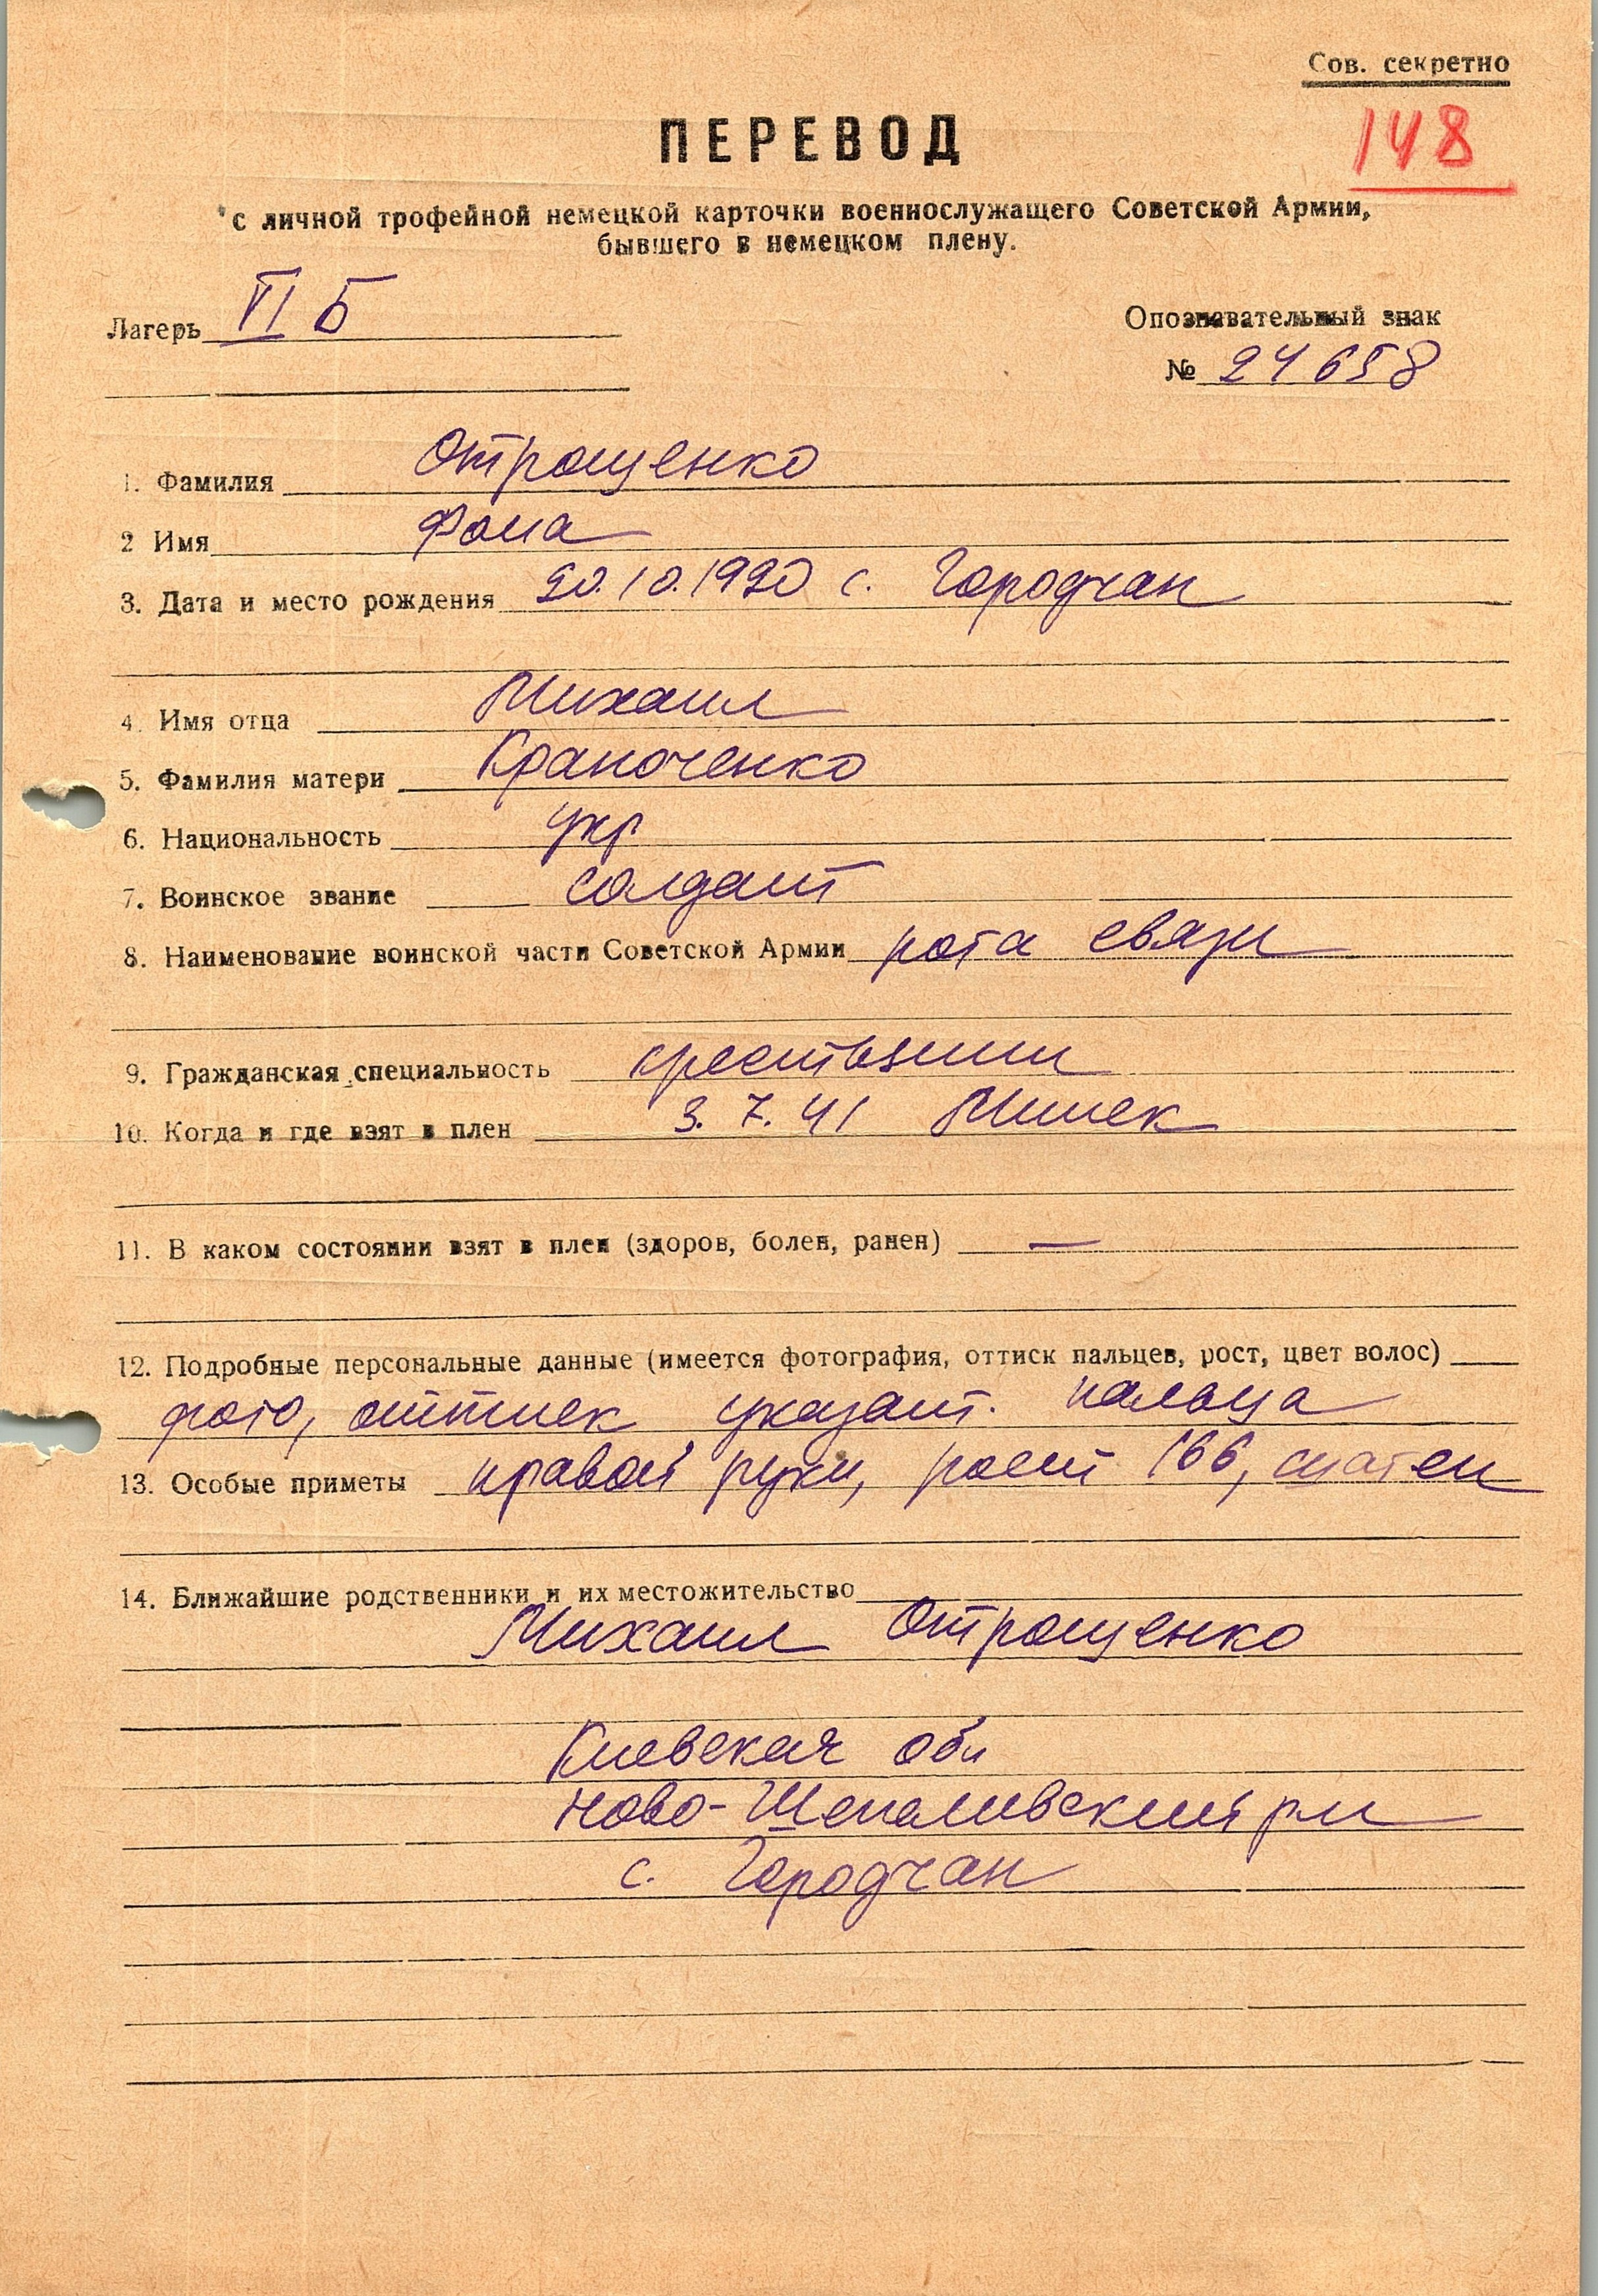 Сов. секретно
148
ПЕРЕВОД
с личной трофейной немецкой карточки военнослужащего Советской Армии,
бывшего в немецком плену.
Лагерь VI Б
Опознавательный знак
№ 24658
1. Фамилия Отрощенко
2 Имя Фома
3. Дата и место рождения 20.10.1920 с. Городчан
4. Имя отца Михаил
5. Фамилия матери Храпоченко
6. Национальность укр
7. Воинское звание солдат
8. Наименование воинской части Советской Армии рота связи
9. Гражданская специальность крестьянин
10. Когда и где взят в плен 3.7.41 Минск
11. В каком состоянии взят в плен (здоров, болен, ранен) —
12. Подробные персональные данные (имеется фотография, оттиск пальцев, рост, цвет волос)
фото, оттиск указат. пальца
13. Особые приметы правой руки, рост 166, шатен
14. Ближайшие родственники и их местожительство
Михаил Отрощенко
Киевская обл
Ново-Шепеливский р-н
с. Городчан